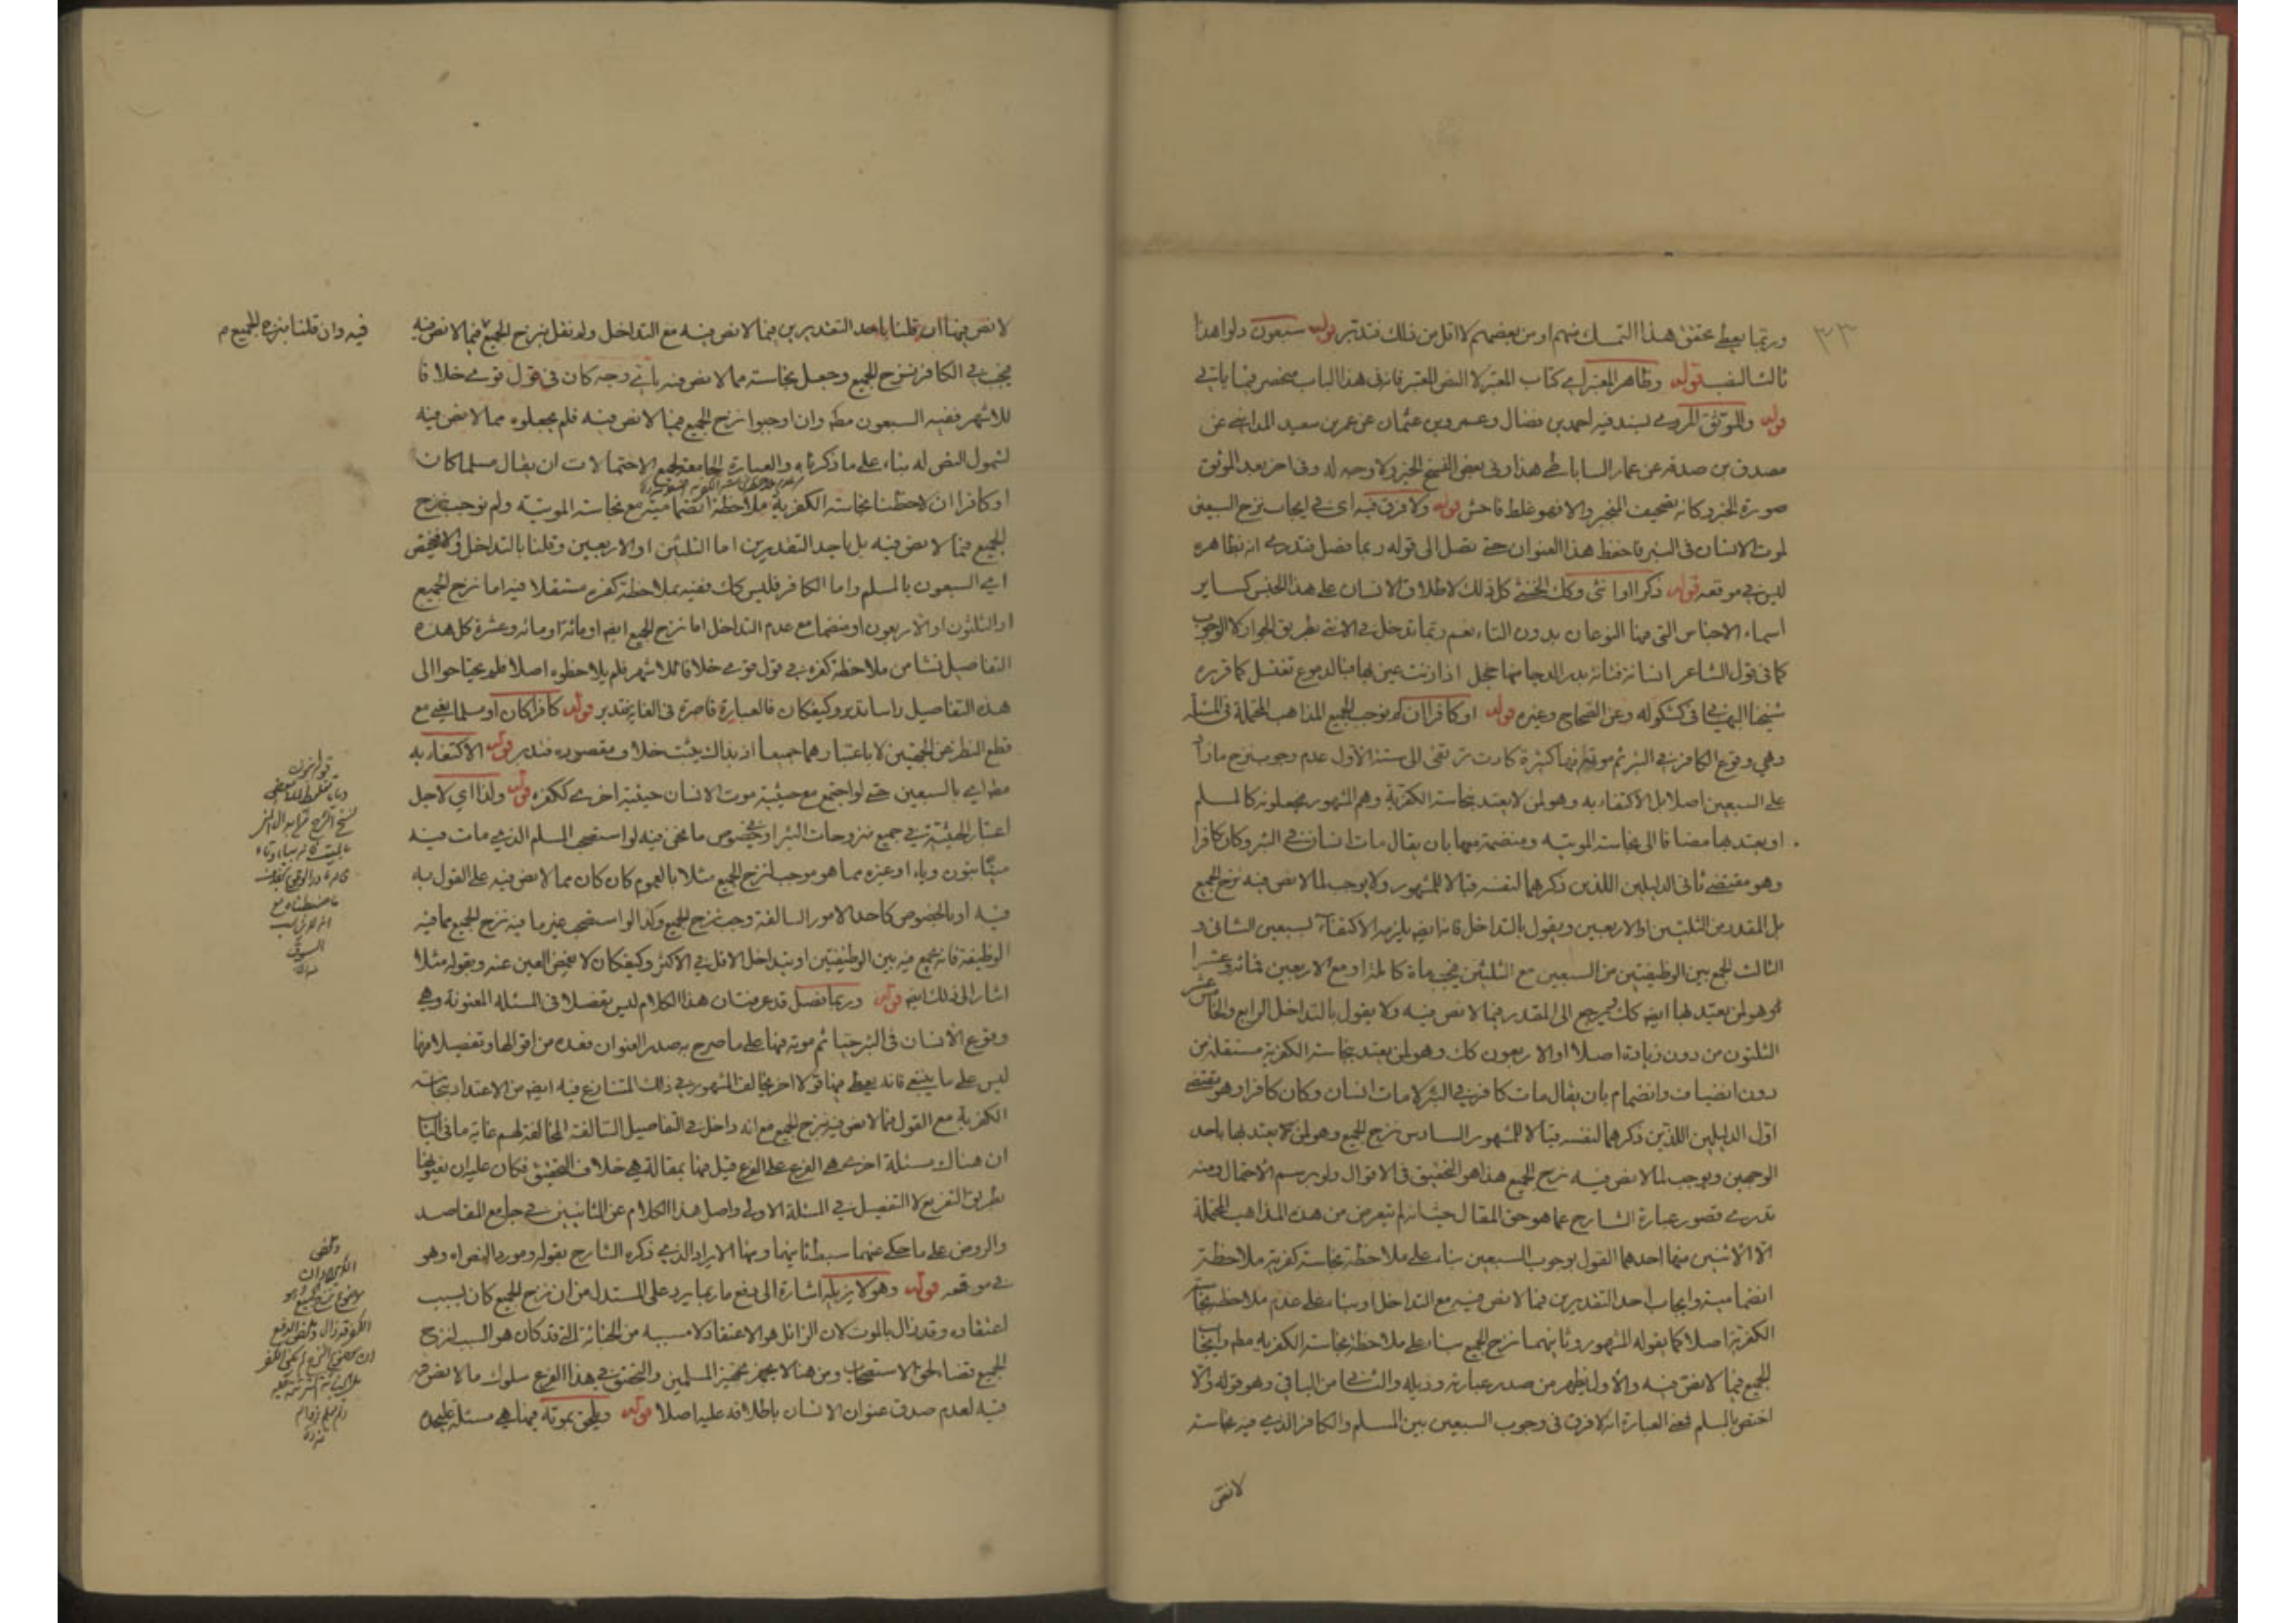 ٣٣
وربما يعطى تحقق هذا التمسك منهم او من بعضهم لا اقل من ذلك فتدبر قوله سبعون دلوا هذا
ثالث النصب قوله وظاهر المعتبر اي كتاب المعتبر لا النص المعتبر فانه في هذا الباب منحصر فيما ياتي
قوله والموثق المروي بسند فيه احمد بن فضال وعمرو بن عثمان عن عمرو بن سعيد المدايني عن
مصدق بن صدقه عن عمار الساباطي هذا وفي بعض النسخ الخبر ولا وجه له وفي اخر بعد الموثق
صورة الخبر وكانه تصحيف المنجبر والا فهو غلط فاحش قوله ولا فرق فيه اي في ايجاب نزح السبعين
لموت الانسان في البئر فاحفظ هذا العنوان حتى تصل الى قوله ربما فصل فتدري انه بظاهره
ليس في موقعه قوله ذكرا او انثى وكك الخنثى كل ذلك لاطلاق الانسان على هذا الجنس كساير
اسماء الاجناس التي فيها النوعان بدون التاء نعم ربما تدخل في الانثى بطريق الجواز لا الوجوب
كما في قول الشاعر انسانة فتانة بدر الدجا منها خجل اذا زنت عيني بها فبالدموع تغتسل كما قرره
شيخنا البهائي في كشكوله وعن الصحاح وغيره قوله او كافرا ان لم نوجب الجميع المذاهب المحتملة في المسألة
وهي وقوع الكافر في البئر ثم موته فيها كثيرة كادت ترتقي الى ستة الاول عدم وجوب نزح مازاد
على السبعين اصلا بل الاكتفاء به وهو لمن لا يعتد بنجاسة الكفرية وهم المشهور يجعلونه كالمسلم
او يعتد بها مضافا الى نجاسة الموتيه ومنضمة معها بان يقال مات انسان في البئر وكان كافرا
وهو مقتضى ثاني الدليلين اللذين ذكرهما لنفسه قبالا للمشهور ولا يوجب لما لا نص فيه نزح الجميع
بل المقدر من الثلثين او الاربعين ويقول بالتداخل فانه ايضا يلزمه الاكتفاء بسبعين الثاني و
الثالث الجمع بين الوظيفتين من السبعين مع الثلثين فيجب ماة كاملة او مع الاربعين فمائة وعشرا
وهو لمن يعتد بها ايضا كك ويرجع الى المقدر فيما لا نص فيه ولا يقول بالتداخل الرابع والخامس
الثلثون من دون زيادة اصلا او الاربعون كك وهو لمن يعتد بنجاسة الكفرية مستقلة من
دون انضياف وانضمام بان يقال مات كافر في البئر لا مات انسان وكان كافرا وهو مقتضى
اول الدليلين اللذين ذكرهما لنفسه قبالا للمشهور السادس نزح الجميع وهو لمن يعتد بها باحد
الوجهين ويوجب لما لا نص فيه نزح الجميع هذا هو التحقيق في الاقوال ولو برسم الاحتمال ومنه
تدري قصور عبارة الشارح عما هو حق المقال حيث انه لم يتعرض من هذه المذاهب المحتملة
الا لاثنين منها احدهما القول بوجوب السبعين بناء على ملاحظة نجاسة كفرية ملاحظة
انضمامية وايجاب احد التقديرين فيما لا نص فيه مع التداخل او بناء على عدم ملاحظة نجاسة
الكفرية اصلا كما يقوله المشهور وثانيهما نزح الجميع بناء على ملاحظة نجاسة الكفرية مطلقا وايجاب
الجميع فيما لا نص فيه والاول يظهر من صدر عبارته وذيله والثاني من الباقي وهو قوله والا
اختص بالمسلم فمعنى العبارة انه لا فرق في وجوب السبعين بين المسلم والكافر الذي فيه نجاسة
لا نص
لا نص فيها ان قلنا باحد التقديرين فيما لا نص فيه مع التداخل ولم نقل بنزح الجميع فيما لا نص فيه
فيه وان قلنا بنزح الجميع م
يجب في الكافر نزح الجميع وجعل نجاسته مما لا نص فيه باي وجه كان في قول قوي خلافا
للاشهر ففيه السبعون مطلقا وان اوجبوا نزح الجميع فيما لا نص فيه فلم يجعلوه مما لا نص فيه
لشمول النص له بناء على ما ذكرناه والعبارة الجامعة لجميع الاحتمالات ان يقال مسلما كان
او كافرا ان لاحظنا نجاسته الكفرية ملاحظة انضمامية مع نجاسته الموتية ولم نوجب نزح
الجميع فيما لا نص فيه بل باحد التقديرين اما الثلثين او الاربعين وقلنا بالتداخل والا فيختص
اي السبعون بالمسلم واما الكافر فليس كك ففيه بملاحظة كفره مستقلا فيه اما نزح الجميع
او الثلثون او الاربعون او منضما مع عدم التداخل اما نزح الجميع ايضا او مائة او مائة وعشرة كل هذه
التفاصيل نشا من ملاحظة كفره في قول قوي خلافا للاشهر فلم يلاحظوه اصلا فلم يحتاجوا الى
هذه التفاصيل راسا تدبر وكيف كان فالعبارة قاصرة في الغاية فتدبر قوله كافرا كان او مسلما يعني مع
قطع النظر عن الجهتين لا باعتبارهما جميعا اذ بذاك يثبت خلاف مقصوده فتدبر قوله الاكتفاء به
مطلقا اي بالسبعين حتى لو اجتمع مع حيثية موت الانسان حيثية اخرى ككفره قوله ولذا اي لاجل
اعتبار الحيثية في جميع منزوحات البئر او خصوص ما نحن فيه لو استصحب المسلم الذي مات فيه
ميتا بثوب وباء او غيره مما هو موجب لنزح الجميع مثلا بالعموم كان كان مما لا نص فيه على القول به
فيه او بالخصوص كاحد الامور السالفة وجب نزح الجميع وكذا لو استصحب غير ما فيه نزح الجميع مما فيه
الوظيفة فانه يجمع فيه بين الوظيفتين او يتداخل الاقل في الاكثر وكيف كان لا يغمض العين عنه وبقوله مثلا
اشار الى ذلك ايضا قوله وربما فصل قد عرفت ان هذا الكلام ليس تفصيلا في المسئلة المعنونة وهي
وقوع الانسان في البئر حيا ثم موته فيها على ما صرح به صدر العنوان فعده من اقوالها وتفصيلا فيها
ليس على ما ينبغي فانه يعطى فيها قولا اخر يخالف المشهور في ذلك المتنازع فيه ايضا من الاعتداد بنجاسته
الكفرية مع القول فيما لا نص فيه بنزح الجميع مع انه داخل في التفاصيل السالفة المخالفة لهم غاية ما في الباب
ان هناك مسئلة اخرى هي الفرع على الفرع قيل فيها بمقالة هي خلاف التحقيق فكان عليه ان يعنونها
بطريق التفريع لا التفصيل في المسئلة الاولى واصل هذا الكلام عن الثانيين في جامع المقاصد
والروض على ما حكى عنهما سبط ثانيهما ومنها الايراد الذي ذكره الشارح بقوله ومورد النص اه وهو
في موقعه قوله وهو لا يزيله اشارة الى دفع ما ربما يرد على المستدل من ان نزح الجميع كان بسبب
اعتقاده وقد زال بالموت لان الزائل هو الاعتقاد لا مسببه من الخباثة التي قد كان هو السبب لنزح
الجميع قضاء لحق الاستصحاب ومن هنا لا يجهز تجهيز المسلمين والتحقيق في هذا الفرع سلوك ما لا نص
فيه لعدم صدق عنوان الانسان باطلاقه عليه اصلا قوله ويلحق بموته فيها هي مسئلة عليحده